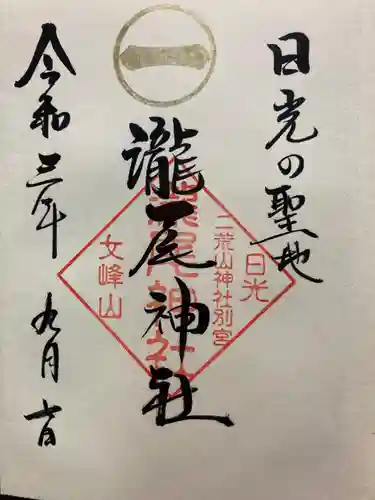 日光の聖地
一
瀧尾神社
日光
二荒山神社別宮
女峰山
令和三年九月七日